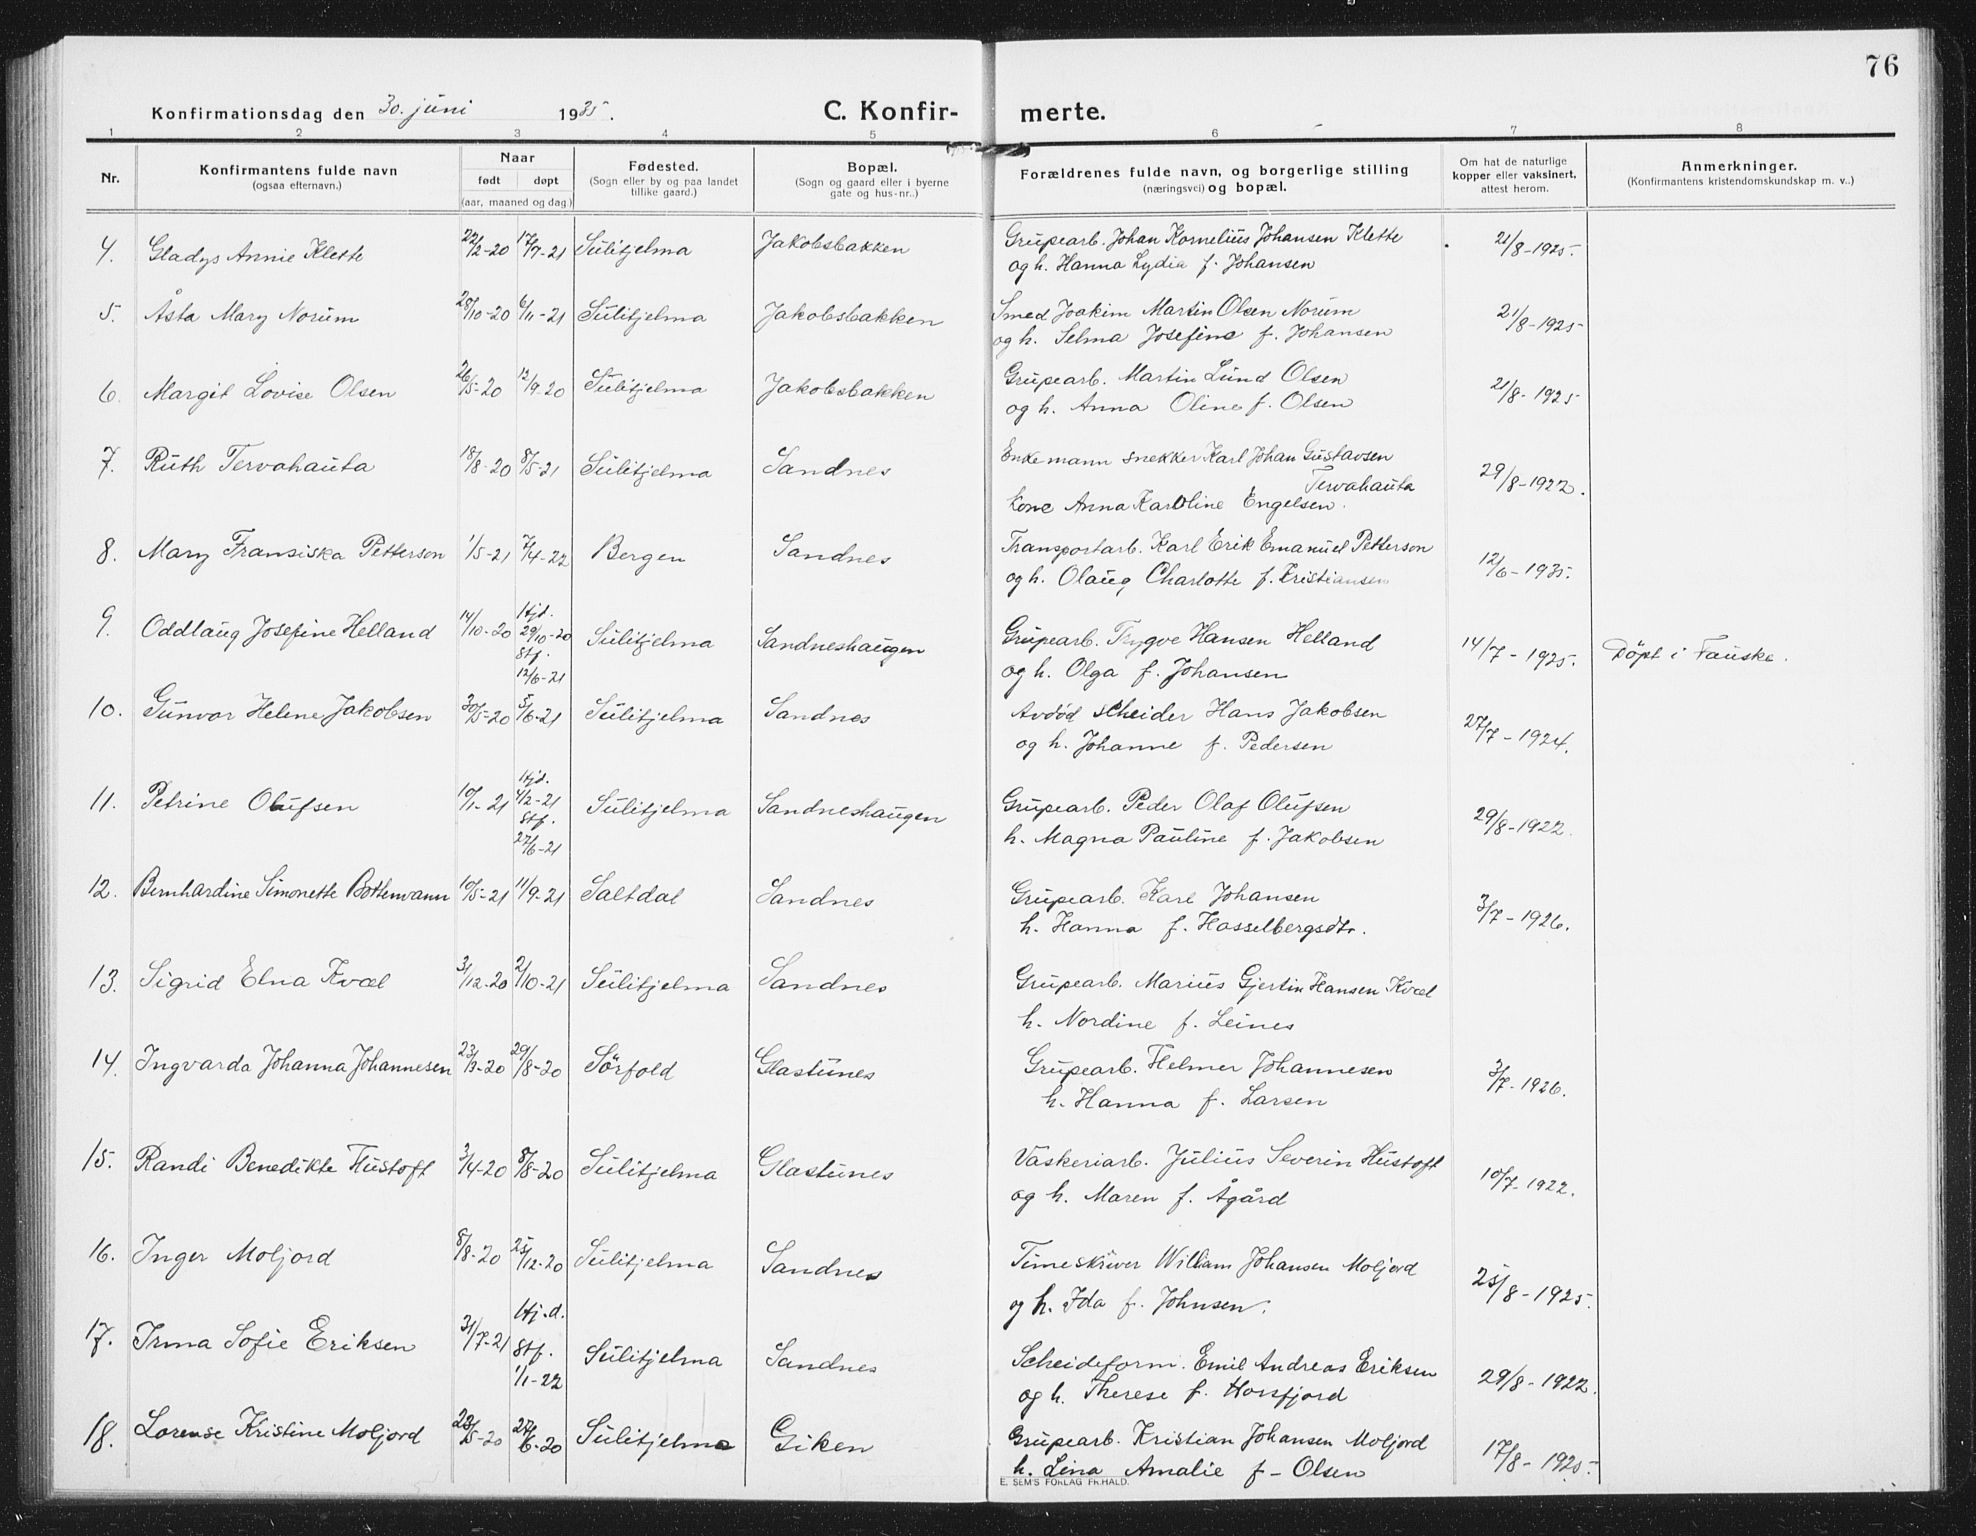 76
Konfirmationsdag den 30. juni 1935.
C. Konfir- merte.
1 2 3 4 5 6 7 8
Nr.
Konfirmantens fulde navn
(ogsaa efternavn.)
Naar
født døpt
(aar, maaned og dag.)
Fødested.
(Sogn eller by og paa landet
tillike gaard.)
Bopæl.
(Sogn og gaard eller i byerne
gate og hus-nr..)
Forældrenes fulde navn, og borgerlige stilling
(næringsvei) og bopæl.
Om hat de naturlige
kopper eller vaksinert,
attest herom.
Anmerkninger.
(Konfirmantens kristendomskundskap m. v..)
4. Gladys Annie Klette 22/2-20 17/7-21 Sulitjelma Jakobsbakken Grupearb. Johan Kornelius Johansen Klette 21/8-1925.
og h. Hanna Lydia f. Johansen
5. Åsta Mary Norum 28/10-20 6/11-21 Sulitjelma Jakobsbakken Smed Joakim Martin Olsen Norum 21/8-1925
og h. Selma Josefine f. Johansen
6. Margit Lovise Olsen 26/5-20 12/9-20 Sulitjelma Jakobsbakken Grupearb. Martin Lund Olsen 21/8-1925
og h. Anna Oline f. Olsen
7. Ruth Tervahauta 18/8-20 8/5-21 Sulitjelma Sandnes Enkemann snekker Karl Johan Gustavsen 29/8-1922.
Tervahauta
kone Anna Karoline Engelsen.
8. Mary Fransiska Petterson 1/5-21 7/4-22 Bergen Sandnes Transportarb. Karl Erik Emanuel Petterson 12/6-1935.
og h. Olaug Charlotte f. Kristiansen
9. Oddlaug Josefine Helland 14/10-20 Hjd. 29/10-20 Stf. 12/6-21 Sulitjelma Sandneshaugen Grupearb. Trygve Hansen Helland 14/7-1925. Döpt i Fauske.
og h. Olga f. Johansen
10. Gunvor Helene Jakobsen 30/5-20 5/6-21 Sulitjelma Sandnes Avdöd scheider Hans Jakobsen 27/7-1924.
og h. Johanne f. Pedersen
11. Petrine Olufsen 10/1-21 Hjd. 4/2-21 Stf. 27/6-21 Sulitjelma Sandneshaugen Grupearb. Peder Olaf Olufsen 29/8-1922.
h. Magna Pauline f. Jakobsen
12. Bernhardine Simonette Bottenvann 10/5-21 11/9-21 Saltdal Sandnes Grupearb. Karl Johansen 3/7-1926.
h. Hanna f. Hasselbergsdtr.
13. Sigrid Elna Kvæl 31/12-20 2/10-21 Sulitjelma Sandnes Grupearb. Marius Gjertin Hansen Kvæl
h. Nordine f. Leines
14. Ingvarda Johanna Johannesen 23/3-20 29/8-20 Sörfold Glastunes Grupearb. Helmer Johannesen 3/7-1926.
h. Hanna f. Larsen
15. Randi Benedikte Hustoft 3/4-20 8/8-20 Sulitjelma Glastunes Vaskeriarb. Julius Severin Hustoft 10/7-1922.
og h. Maren f. Ågård
16. Inger Moljord 8/8-20 25/12-20 Sulitjelma Sandnes Timeskriver William Johansen Moljord 25/8-1925.
og h. Ida f. Johnsen.
17. Irma Sofie Eriksen 31/7-21 Hj.d. Stf. 1/1-22 Sulitjelma Sandnes Scheideform. Emil Andreas Eriksen 29/8-1922.
og h. Therese f. Horsfjord
18. Lorense Kristine Moljord 28/5-20 27/6-20 Sulitjelma Giken Grupearb. Kristian Johansen Moljord 17/8-1925.
h. Lina Amalie f- Olsen
E. SEM'S FORLAG FR.HALD.